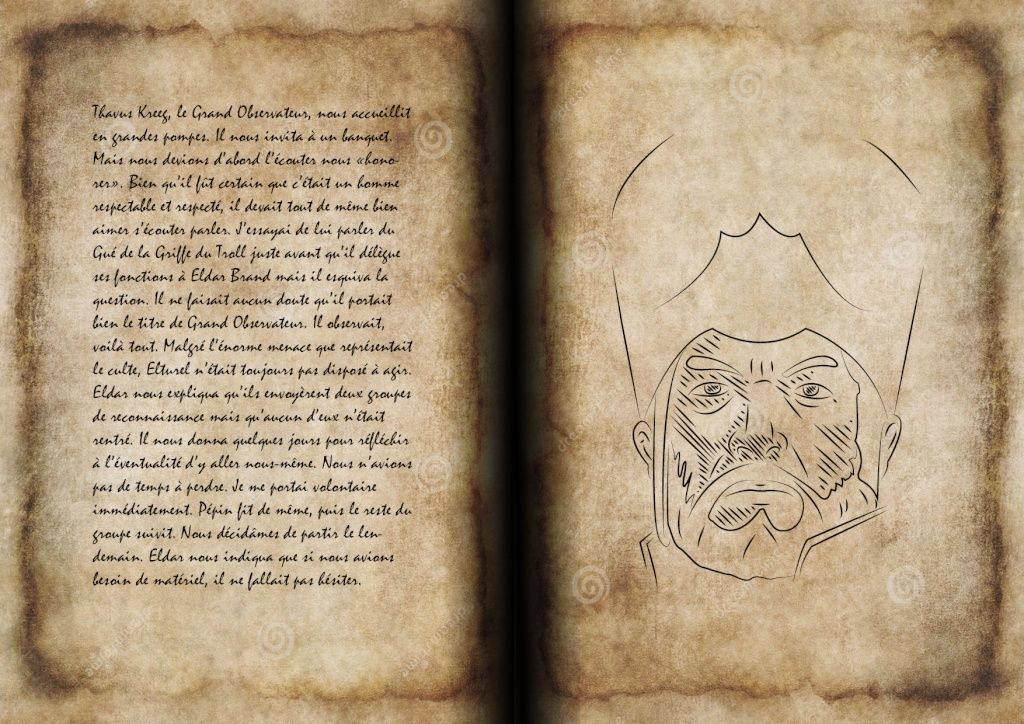 Thavus Kreeg, le Grand Observateur, nous accueillit
en grandes pompes. Il nous invita à un banquet.
Mais nous devions d'abord l'écouter nous «hono-
rer». Bien qu'il fût certain que c'était un homme
respectable et respecté, il devait tout de même bien
aimer s'écouter parler. J'essayai de lui parler du
Gué de la Griffe du Troll juste avant qu'il délègue
ses fonctions à Eldar Brand mais il esquiva la
question. Il ne faisait aucun doute qu'il portait
bien le titre de Grand Observateur. Il observait,
voilà tout. Malgré l'énorme menace que représentait
le culte, Elturel n'était toujours pas disposé à agir.
Eldar nous expliqua qu'ils envoyèrent deux groupes
de reconnaissance mais qu'aucun d'eux n'était
rentré. Il nous donna quelques jours pour réfléchir
à l'éventualité d'y aller nous-même. Nous n'avions
pas de temps à perdre. Je me portai volontaire
immédiatement. Pépin fit de même, puis le reste du
groupe suivit. Nous décidâmes de partir le len-
demain. Eldar nous indiqua que si nous avions
besoin de matériel, il ne fallait pas hésiter.